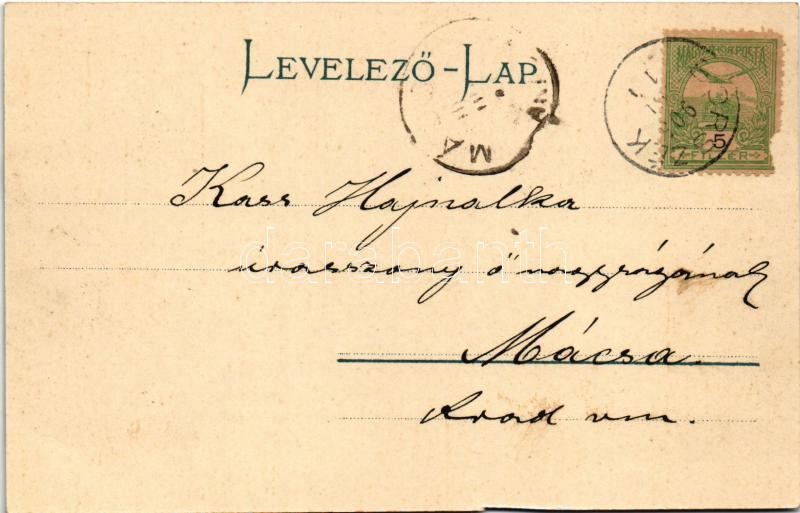 LEVELEZŐ-LAP.
MAGYAR KIR. POSTA
5
FILLÉR
MA
Kass Hajnalka
úrasszony ő nagyságának
darabanth
Mácsa.
Arad vm.